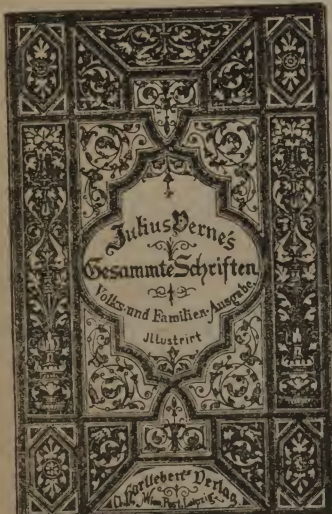 Julius Verne's
Gesammte Schriften
Volks- und Familien-Ausgabe.
Illustrirt
A. Hartleben's Verlag
Wien. Pest. Leipzig.